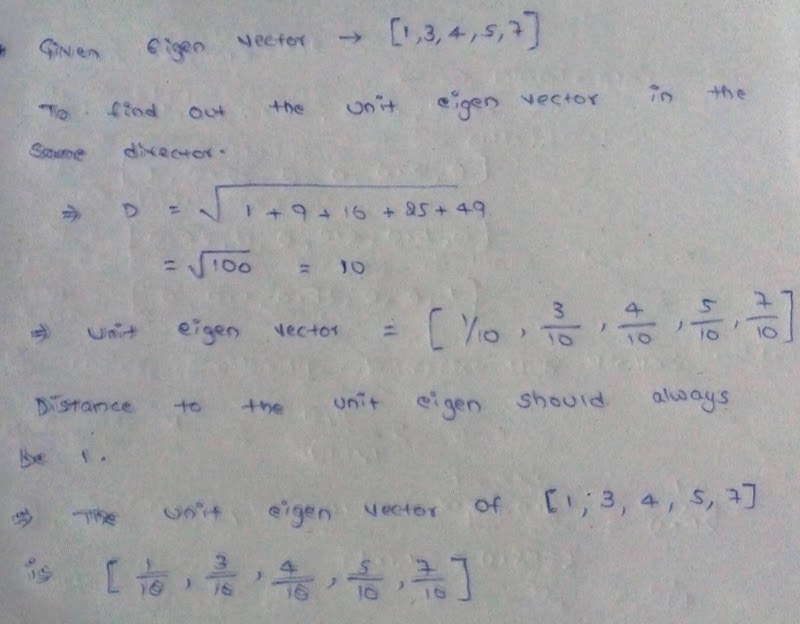 Given Eigen vector → [1,3,4,5,7]
To find out the unit eigen vector in the
Same director.
⇒ D = √1+9+16+25+49
= √100 = 10
⇒ unit eigen vector = [1/10, 3/10, 4/10, 5/10, 7/10]
Distance to the unit eigen should always
be 1.
⇒ The unit eigen vector of [1,3,4,5,7]
is [1/10, 3/10, 4/10, 5/10, 7/10]